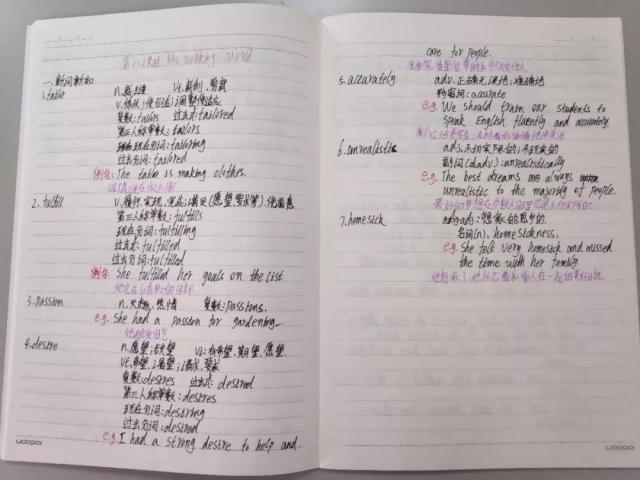 第八课时 The Working World
一、新词新知
1.tailor
n.裁缝 vt.裁制,剪裁
复数:tailors 过去式:tailored
第三人称单数:tailors
现在分词:tailoring
过去分词:tailored
例句: The tailor is making clothes.
2.fulfill
第三人称单数:fulfills
现在分词:fulfilling
过去式:fulfilled
过去分词:fulfilled
例句: She fulfilled her goals on the list
3.passion
n. 热情 复数:passions.
e.g. She had a passion for gardening.
4.desire
n.愿望;渴望
vt.希望,渴望;请求,要求
复数:desires 过去式:desired
第三人称单数:desires
现在分词:desiring
过去分词:desired
e.g. I had a strong desire to help and
care for people.
5.accurately
adv.正确无误地;准确地
形容词:accurate
e.g. We should train our students to
speak English fluently and accurately.
6.unrealistic
adj.不切实际的;不现实的
副词(adv):unrealistically
e.g. The best dreams are always
unrealistic to the majority of people.
7.homesick
adj:想家的思乡的.
名词(n), homesickness.
e.g. She felt very homesick and missed
the time with her family.